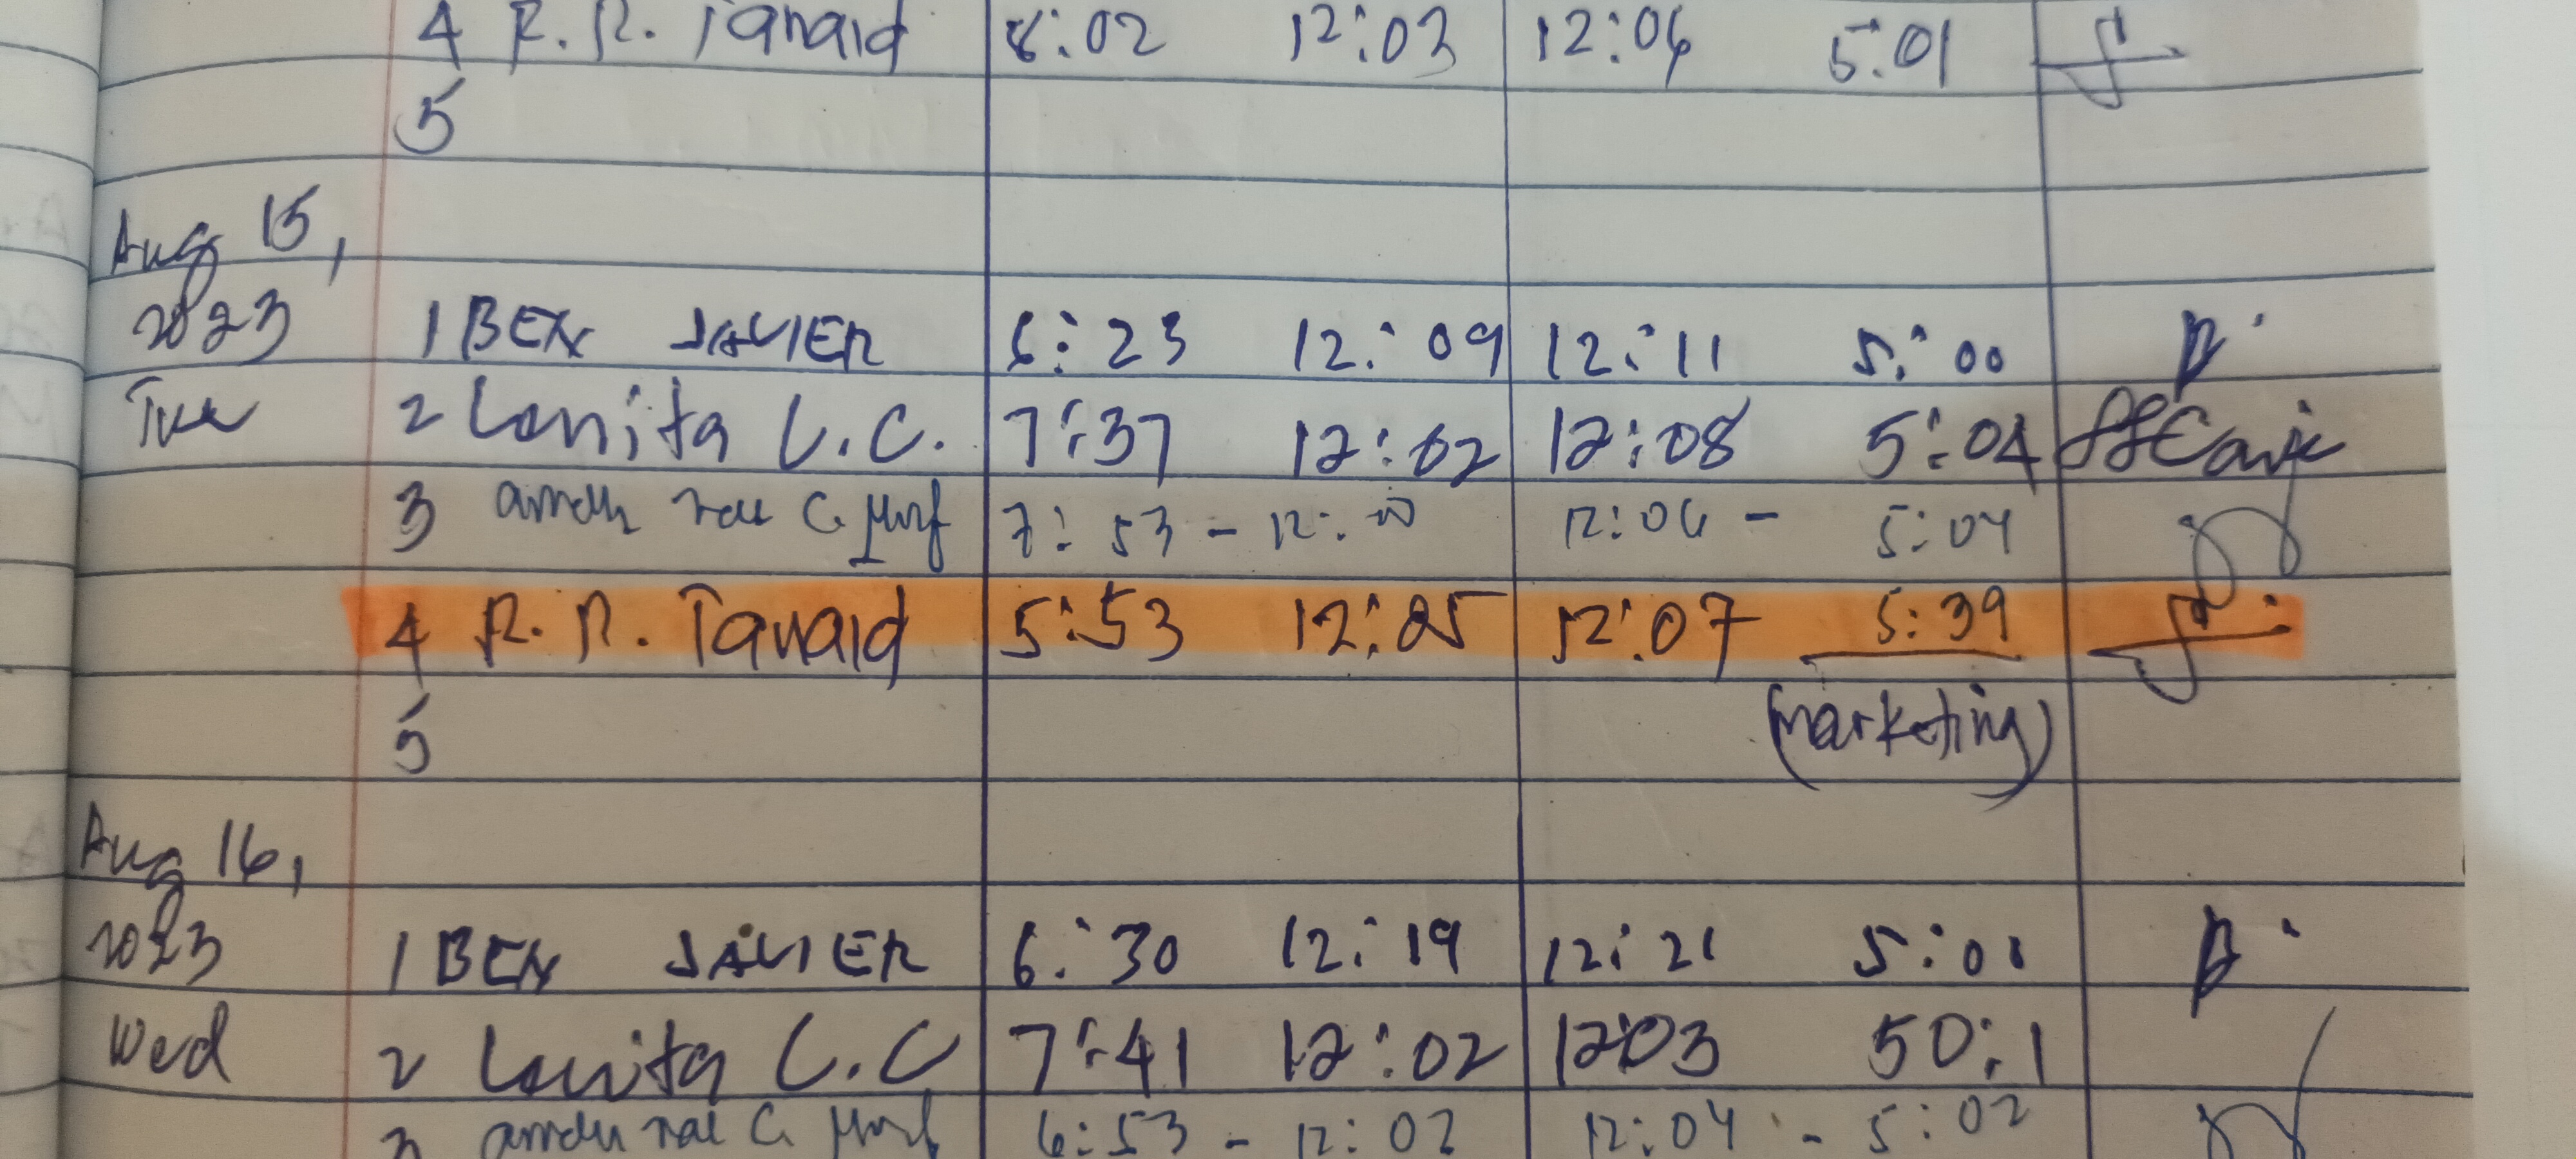 4 R. R. Tanaid 8:02 12:03 12:06 5:01
5
Aug 15,
2023 1 BEN JAVIER 6:23 12:09 12:11 5:00
Tue 2 Lonita L.C. 7:37 12:02 12:08 5:04
3 rae C. 7:53 - 12: 12:06 - 5:04
4 R. R. Tanaid 5:53 12:05 12:07 5:39
5 (marketing)
Aug 16,
2023 1 BEN JAVIER 6:30 12:19 12:21 5:01
Wed 2 Lonita L.C 7:41 12:02 12:03 50:1
3 rae C. 6:53 - 12:02 12:04 - 5:02